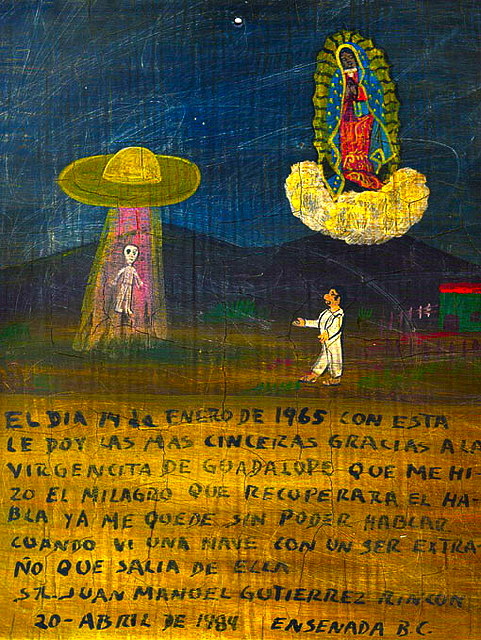 EL DIA 14 de ENERO DE 1965 CON ESTA
LE DOY LAS MAS CINCERAS GRACIAS A LA
VIRGENCITA DE GUADALOPE QUE ME HI-
ZO EL MILAGRO QUE RECUPERARA EL HA-
BLA YA ME QUEDE SIN PODER HABLAR
CUANDO VI UNA NAVE CON UN SER EXTRA-
ÑO QUE SALIA DE ELLA
SR. JUAN MANOEL GUTIERREZ RINCON
20-ABRIL DE 1984 ENSENADA B.C.